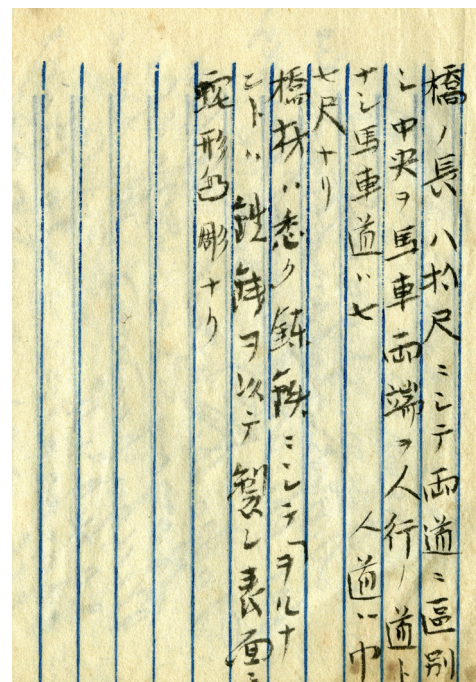 橋ノ長八拾尺ニシテ両道ニ區別
シ中央ヲ馬車両端ヲ人行ノ道ト
ナシ馬車道ハ七　人道ハ巾
七尺ナリ
橋材ハ悉ク錬鉄ニシテ「ヲルナ
ニトハ銑鉄ヲ以テ製シ表面ニ
蛇形凸彫ナリ